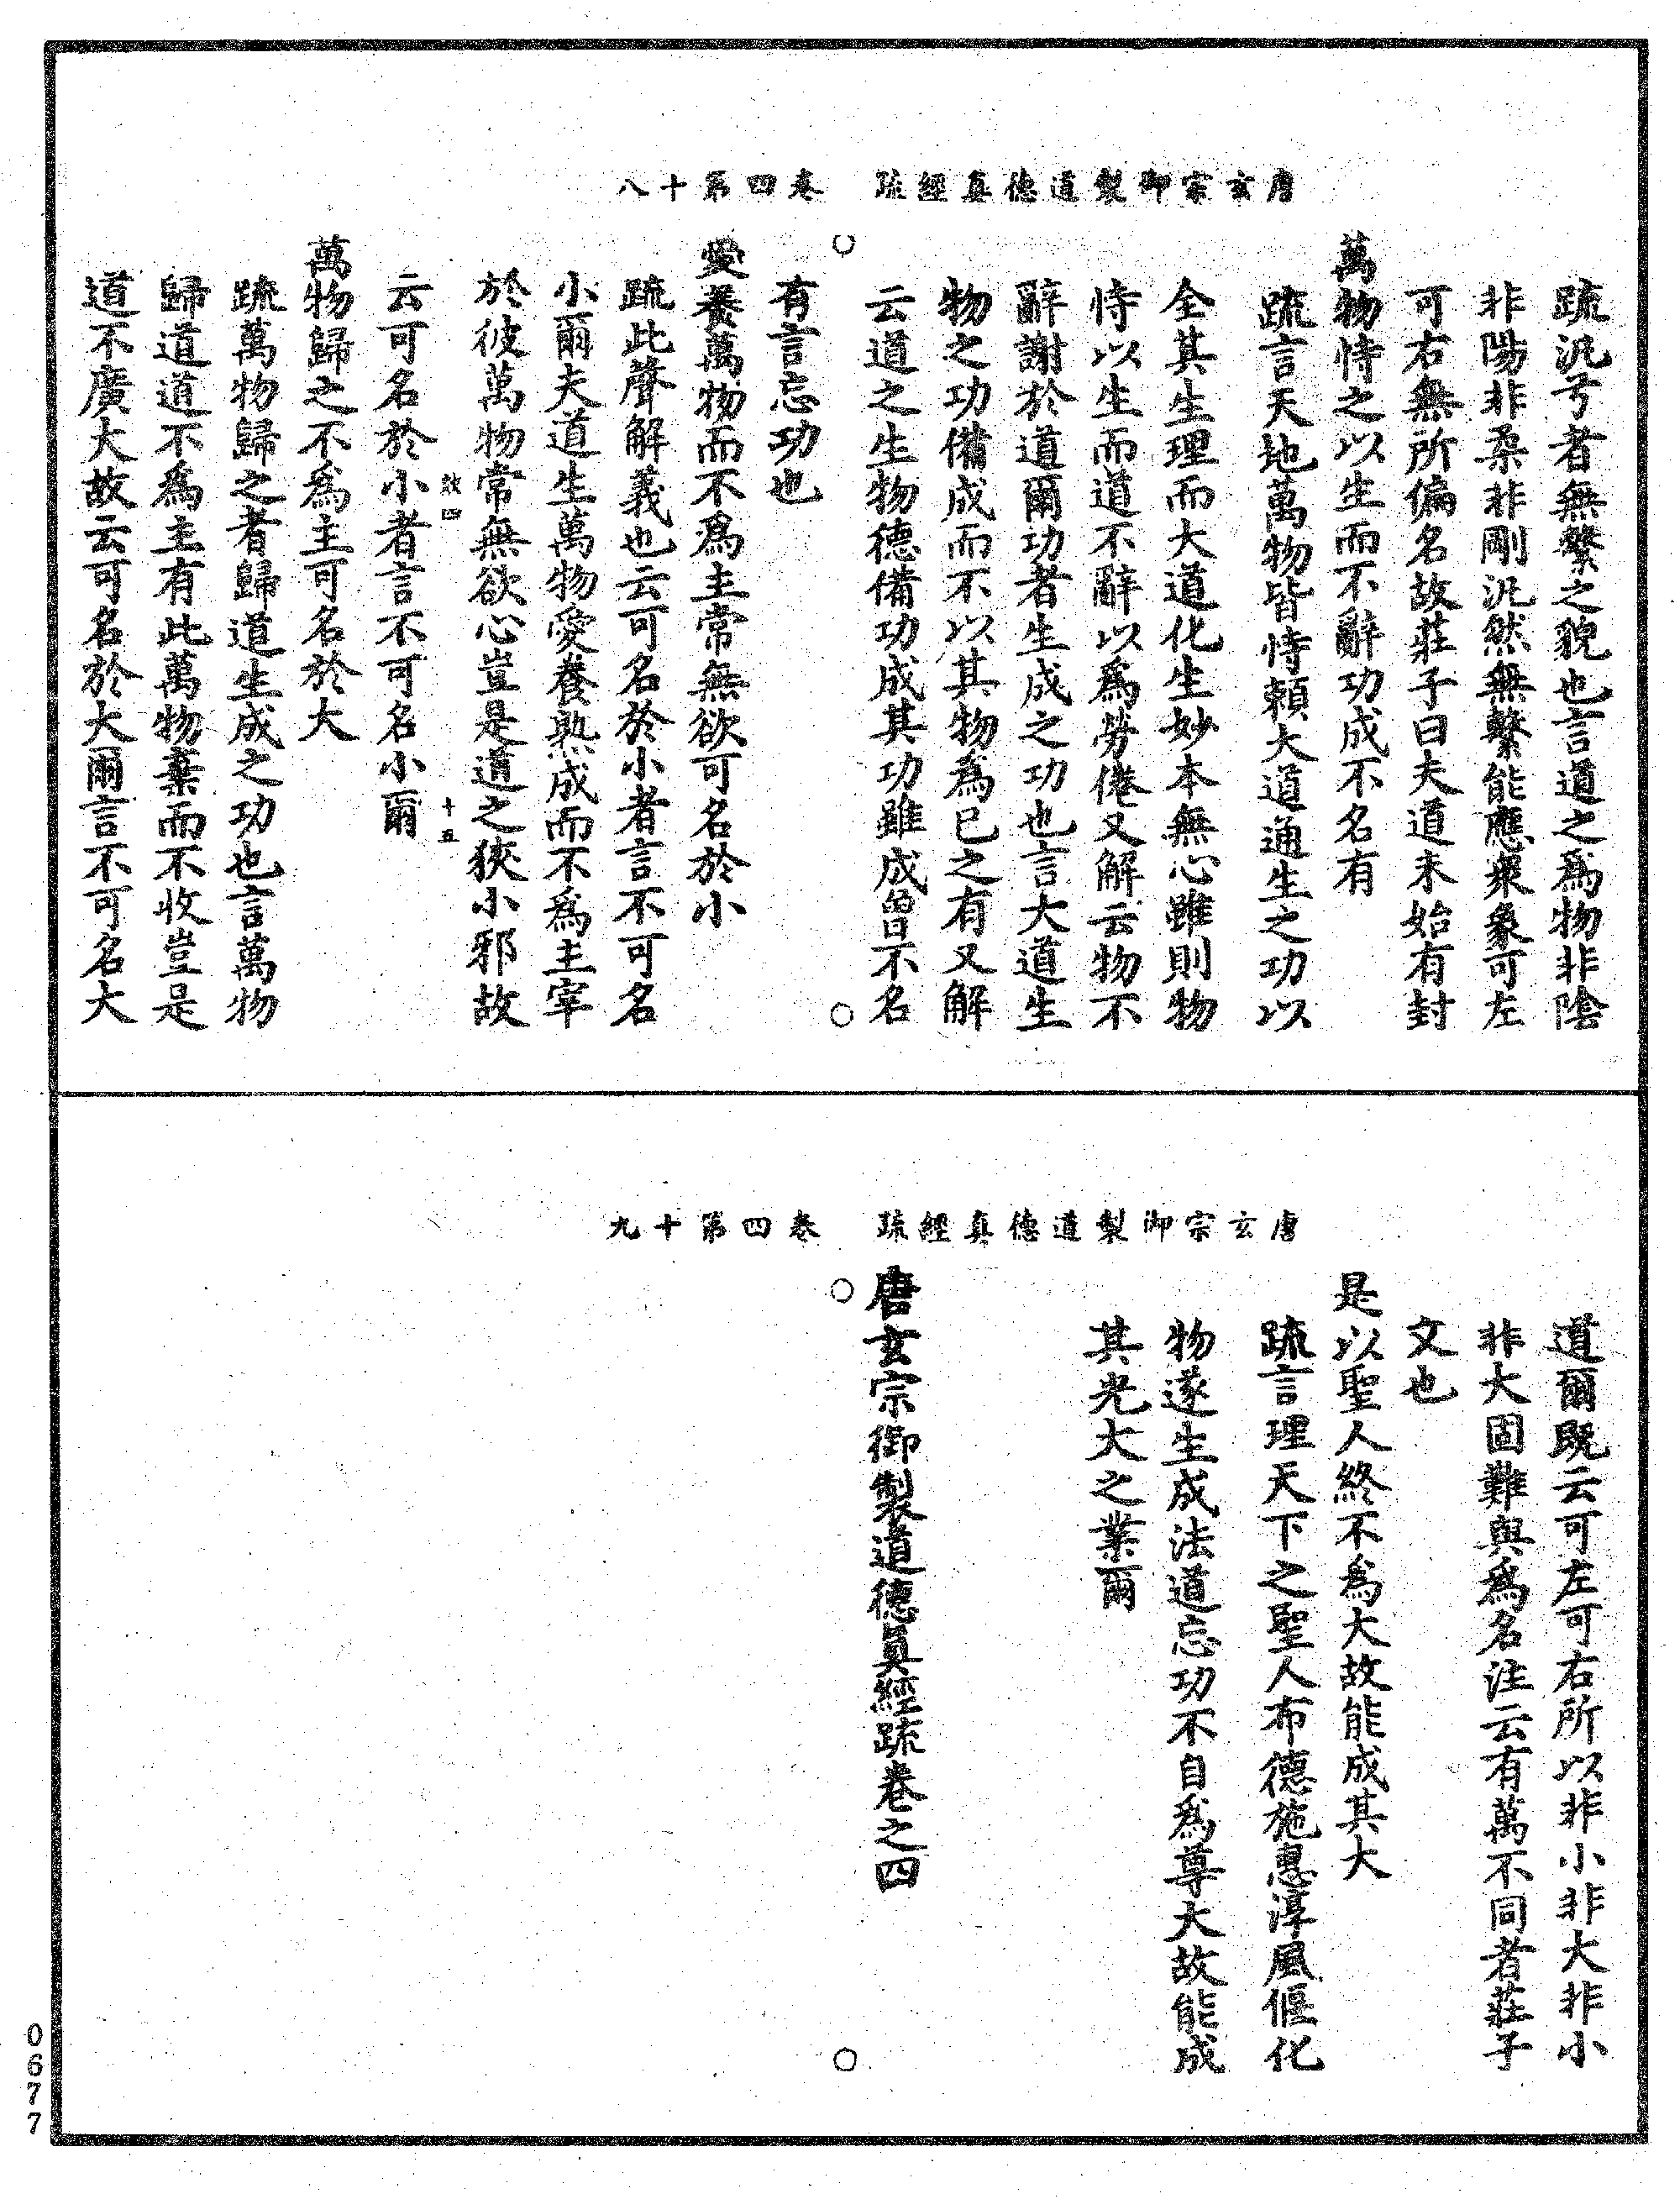 唐玄宗御製道德真經疏　卷四第十八
疏汎兮者無繫之貌也言道之為物非陰
非陽非柔非剛汎然無繫能應衆象可左
可右無所偏名故莊子曰夫道未始有封
萬物恃之以生而不辭功成不名有
疏言天地萬物皆恃賴大道通生之功以
全其生理而大道化生妙本無心雖則物
恃以生而道不辭以為勞倦又解云物不
辭謝於道爾功者生成之功也言大道生
物之功備成而不以其物為己之有又解
云道之生物德備功成其功雖成曾不名
有言忘功也
愛養萬物而不為主常無欲可名於小
疏此聲解義也云可名於小者言不可名
小爾夫道生萬物愛養熟成而不為主宰
於彼萬物常無欲心豈是道之狹小邪故
效四　十五
云可名於小者言不可名小爾
萬物歸之不為主可名於大
疏萬物歸之者歸道生成之功也言萬物
歸道道不為主有此萬物棄而不收豈是
道不廣大故云可名於大爾言不可名大
唐玄宗御製道德真經疏　卷四第十九
道爾既云可左可右所以非小非大非小
非大固難與為名注云有萬不同者莊子
文也
是以聖人終不為大故能成其大
疏言理天下之聖人布德施惠淳風偃化
物遂生成法道忘功不自為尊大故能成
其光大之業爾
唐玄宗御製道德真經疏卷之四
0677